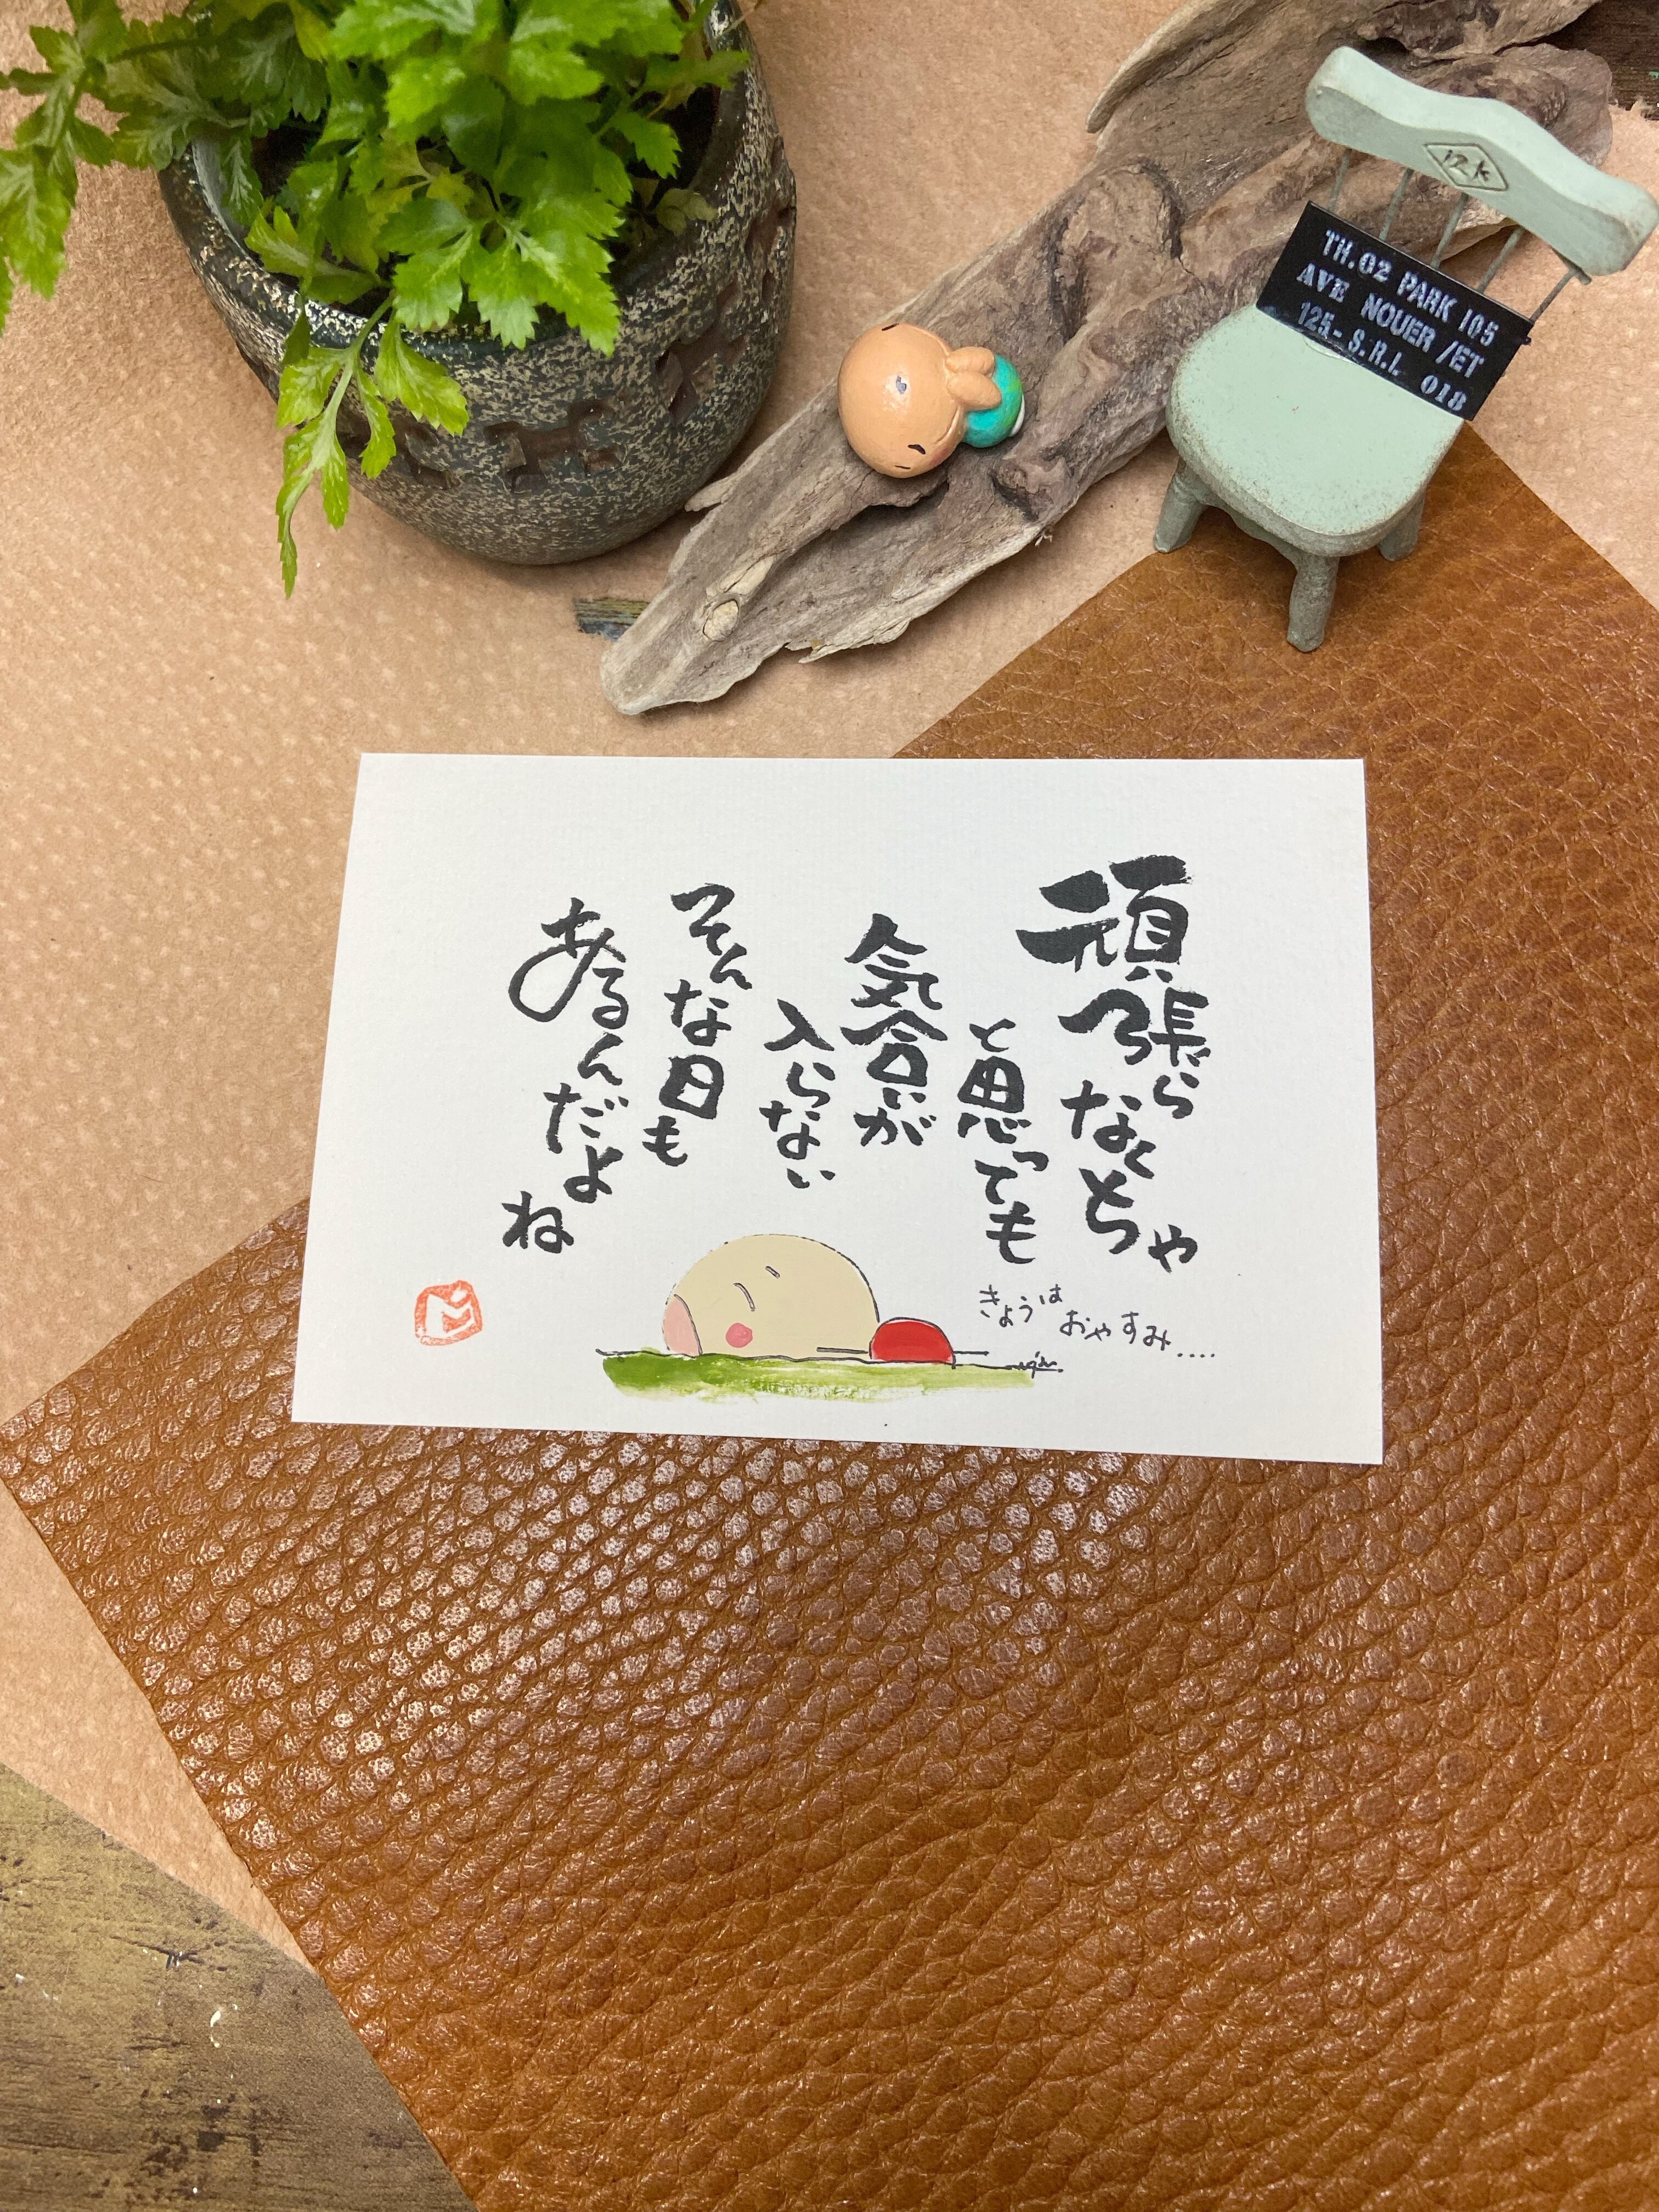 12k
TH.02 PARK 105
AVE NOUER /ET
125.- S.R.L 018
頑張ら
なくちゃ
と思っても
気合いが
入らない
そんな日も
あるんだよ
ね
きょうは
おやすみ....